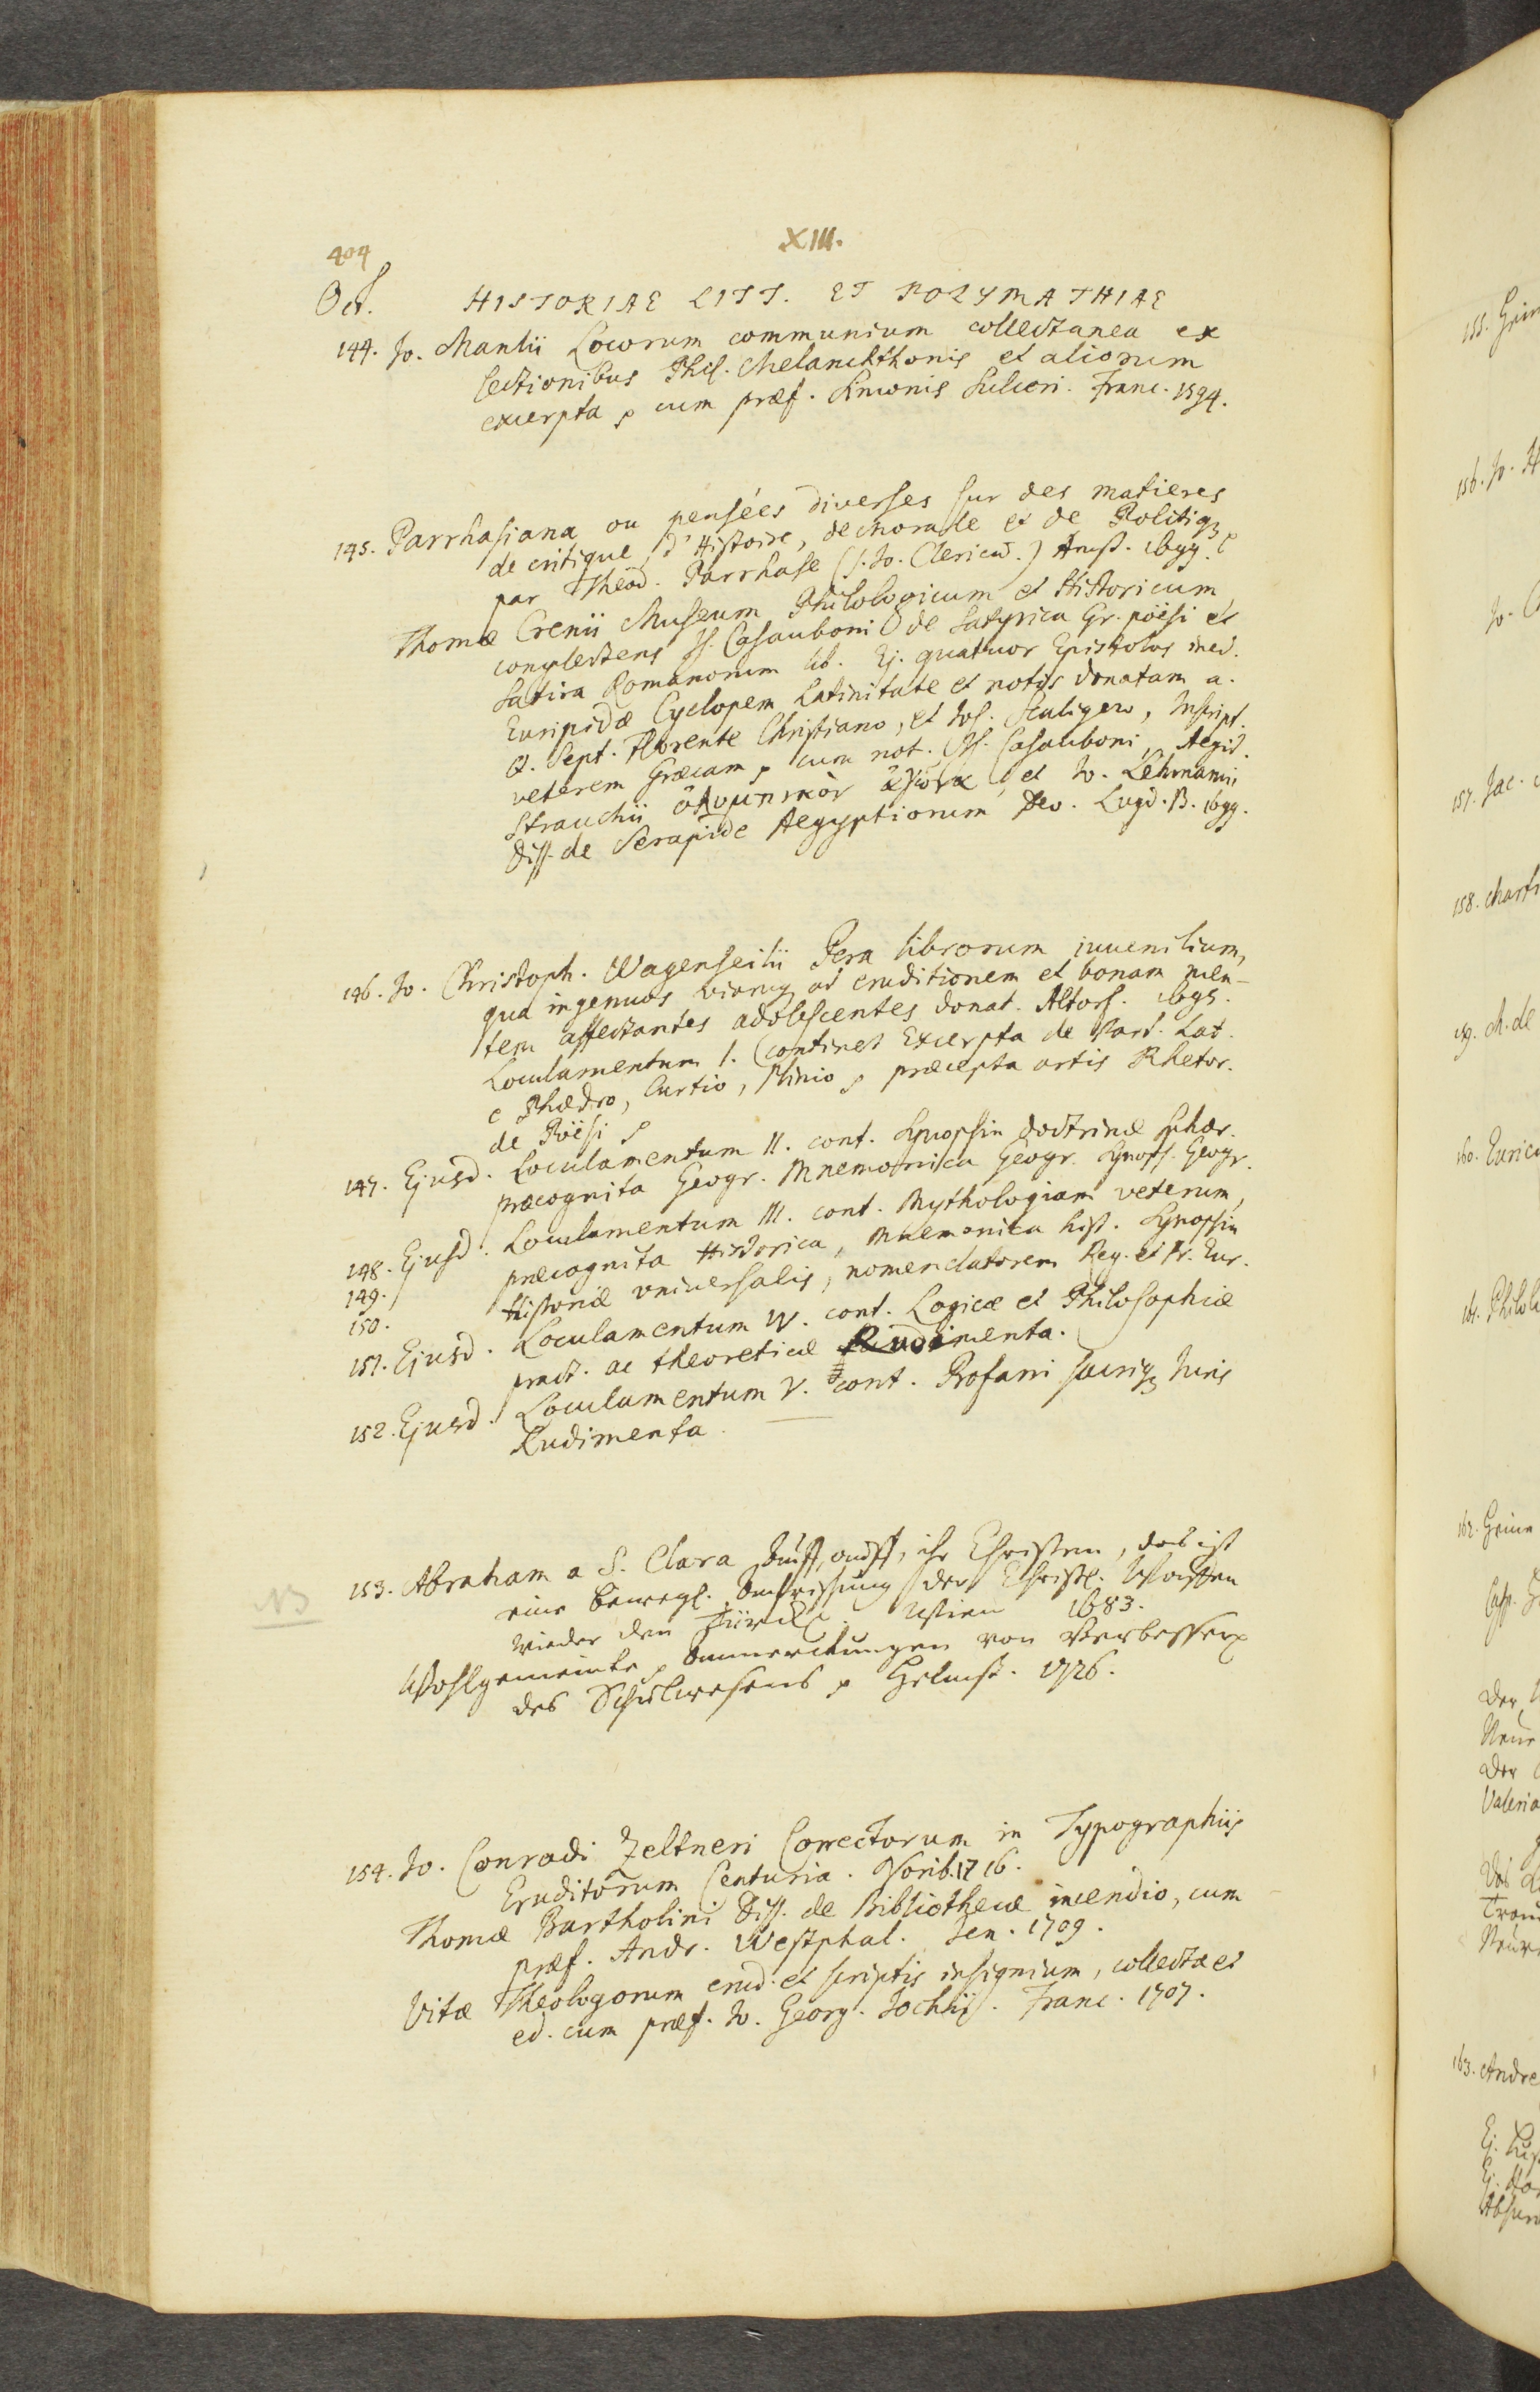 404
XIII.
Oct. HISTORIAE LITT. ET POLYMATHIAE
144. Jo. Manlii Locorum communium collectanea ex
lectionibus Phil. Melanchthonis et aliorum
excerpta cum præf. Simonis Sulceri. Franc. 1594.
145. Parrhasiana ou pensées diverses sur des matieres
de critique, d'Histoire, de Morale et de Politiq3
par Théod. Parrhase (s. Jo. Clericus.) Amst. 1699.
Thomæ Crenii Museum Philologicum et Historicum
complectens Is. Casauboni de Satyrica Gr. poësi et
Satira Romanorum lib. Ej. quatuor Epistolas ined.
Euripidæ Cyclopem Latinitate et notis donatam a.
Q. Sept. Florente Christiano, et Jos. Scaligero, Inscript.
veterem Græcam cum not. Is. Casauboni, Aegid.
Strauchii et Jo. Lehmannii
Diss. de Serapide Aegyptiorum Deo. Lugd. B. 1699.
146. Jo. Christoph. Wagenseilii Pera librorum iuvenilium,
qua ingenuos viamq3 ad eruditionem et bonam men-
tem affectantes adolescentes donat. Altorf. 1695.
Loculamentum I. continet Excerpta de Part. Lat.
e Phædro, Curtio, Plinio præcepta artis Rhetor.
de Poësi
147. Ejusd. Loculamentum II. cont. Synopsin doctrinæ sphær.
præcognita Geogr. Mnemonica Geogr. Synops. Geogr.
148. Ejusd. Loculamentum III. cont. Mythologiam veterum,
149. præcognita Historica, Mnemonica hist. Synopsin
150. Historiæ vniuersalis, nomenclatorem Reg. et Pr. Eur.
151. Ejusd. Loculamentum IV. cont. Logicæ et Philosophiæ
pract. ac theoreticæ Rudimenta.
152. Ejusd. Loculamentum V. cont. Profani sacriq3 Juris
Rudimenta.
153. Abraham a S. Clara auff, auff, ihr Christen, das ist
NB eine bewegl. Anfrischung der Christl. Waffen
wieder den Türck. Wien 1683.
Wohlgemeinte Anmerckungen von Verbesser
des Schulwesens Helmst. 1726.
154. Jo. Conradi Zeltneri Correctorum in Typographiis
Eruditorum Centuria. Norib. 1716.
Thomæ Bartholini Diss. de Bibliothecæ incendio, cum
præf. Andr. Westphal. Jen. 1709.
Vitæ Theologorum erud. et scriptis insignium, collectæ et
ed. cum præf. Jo. Georg. Jochii. Franc. 1707.
155.
156. Jo. H
Jo.
157. Jac.
158. Marti
159. M. de
160.
161. Philol
162.
Der
Der
Valeria
163. Andre
Ej.
Ej.